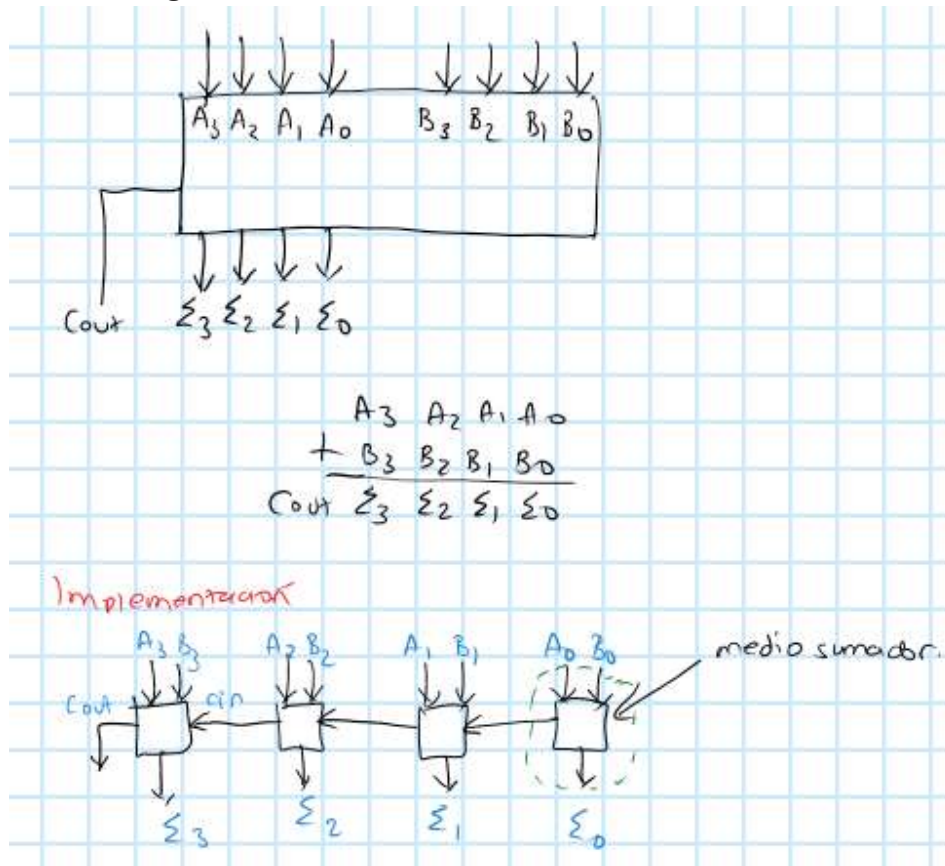 A₃ A₂ A₁ A₀ B₃ B₂ B₁ B₀
Cout Σ₃ Σ₂ Σ₁ Σ₀
A₃ A₂ A₁ A₀
+ B₃ B₂ B₁ B₀
Cout Σ₃ Σ₂ Σ₁ Σ₀
Implementación
A₃ B₃ A₂ B₂ A₁ B₁ A₀ B₀ medio sumador.
Cout cin
Σ₃ Σ₂ Σ₁ Σ₀